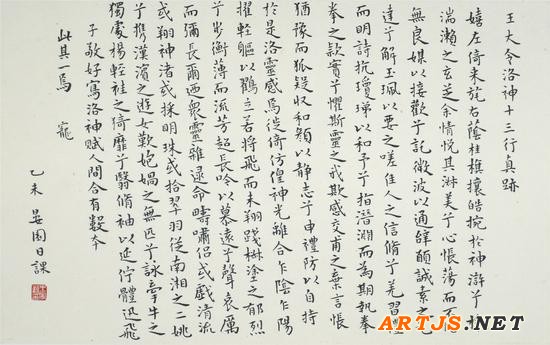 王大令洛神十三行真跡
嬉左倚采旄右蔭桂旗攘皓捥於神滸兮採
湍瀨之玄芝余情悅其淋美兮心悵蕩而不怡
無良媒以接歡兮託微波以通辭願誠素之先
達兮解玉佩以要之嗟佳人之信脩兮羌習禮
而明詩抗瓊珶以和予兮指潛淵而為期執拳
拳之款實兮懼斯靈之我欺感交甫之棄言悵
猶豫而狐疑收和顏以靜志兮申禮防以自持
於是洛靈感焉徙倚仿偟神光離合乍陰乍陽
擢輕軀以鶴立若將飛而未翔踐椒塗之郁烈
兮步蘅薄而流芳超長吟以慕遠兮聲哀厲
而彌長爾迺眾靈雜遝命疇嘯侶或戲清流
或翔神渚或採明珠或拾翠羽從南湘之二姚
兮攜漢濱之遊女歎匏媧之無匹兮詠牽牛之
獨處揚輕袿之倚靡兮翳脩袖以延佇體迅飛
子敬好寫洛神賦人間合有數本
此其一焉 寵
乙未 晏園日課
ARTJS.NET